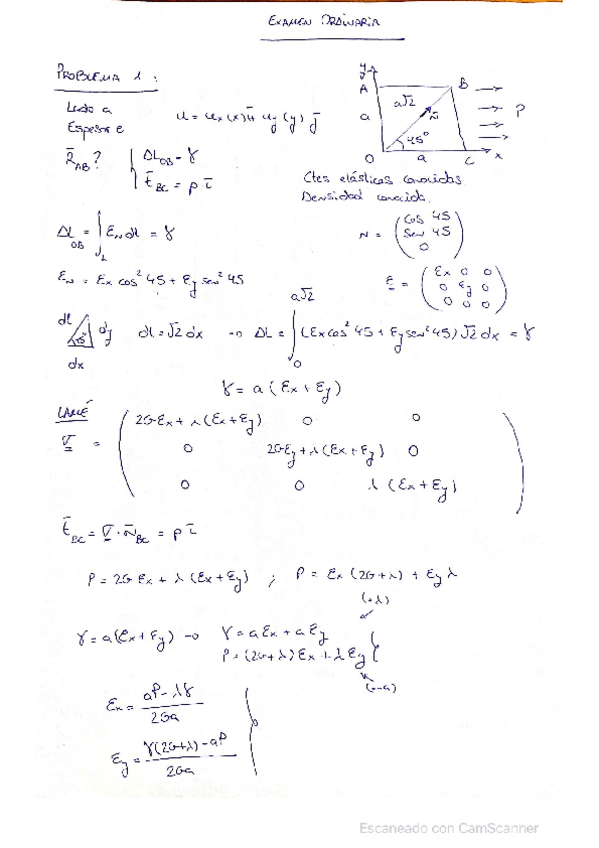 EXAMEN ORDINARIA
PROBLEMA 1:
Lado a
Espesor e
u = ux(x) i + uy(y) j
R̄AB?
ΔLOB = γ
t̄BC = p ī
y
A
B
a√2
n̄
a
45°
O
a
C
x
P
Ctes elásticas conocidas.
Densidad conocida.
ΔL OB = ∫L EN dL = γ
N = (cos 45
sen 45
0)
EN = Ex cos² 45 + Ey sen² 45
E = (Ex 0 0
0 Ey 0
0 0 0)
dL
45°
dy
dx
dL = √2 dx → ΔL = ∫0 a√2 (Ex cos² 45 + Ey sen² 45) √2 dx = γ
γ = a (Ex + Ey)
LAMÉ
σ = (2GEx + λ(Ex + Ey) 0 0
0 2GEy + λ(Ex + Ey) 0
0 0 λ(Ex + Ey))
t̄BC = σ · n̄BC = p ī
P = 2G Ex + λ (Ex + Ey) ; P = Ex (2G + λ) + Ey λ
(·λ)
γ = a(Ex + Ey) → γ = a Ex + a Ey
P = (2G + λ) Ex + λ Ey
(·-a)
Ex = (aP - λγ) / 2Ga
Ey = (γ(2G + λ) - aP) / 2Ga
Escaneado con CamScanner